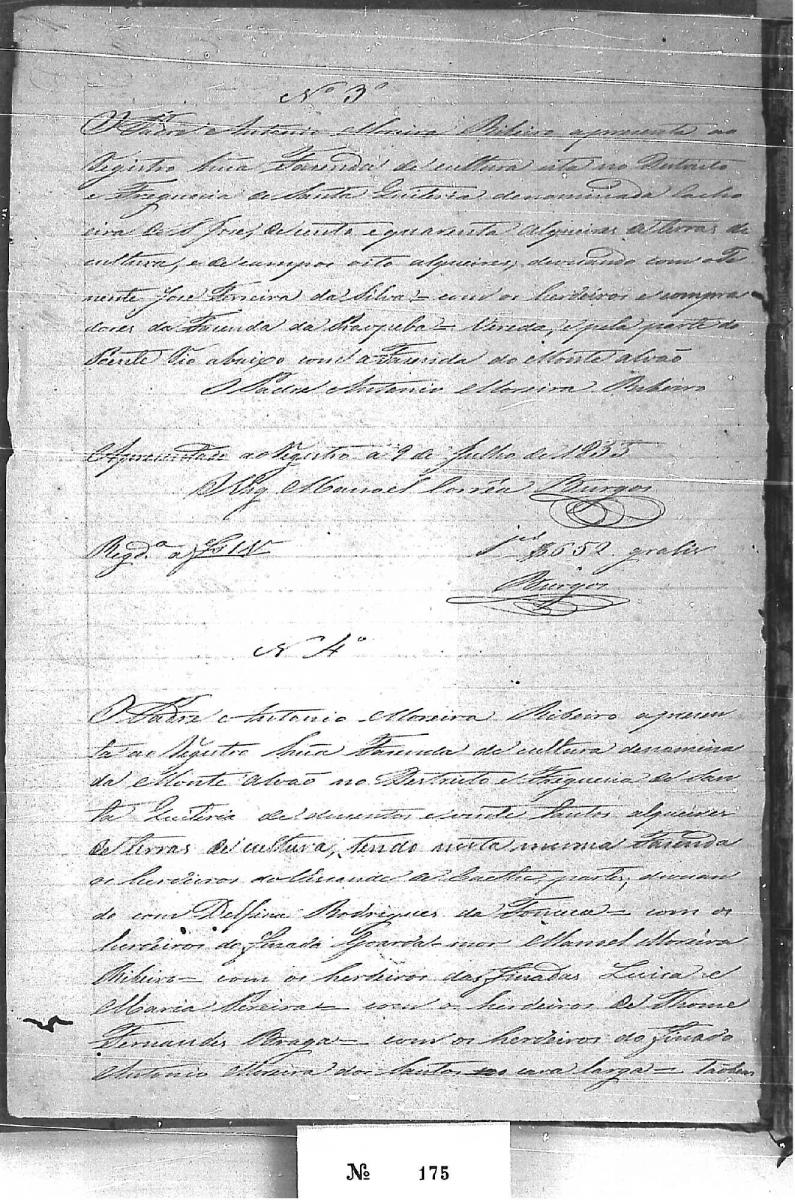 Nº 3º
O Padre Antonio Moreira Ribeiro apresenta ao
Registro hũa Fazenda de cultura sita no Destricto
e Freguesia de Santa Quiteria denominada Cacho
eira de S José, de cento e quarenta alqueires de terras de
cultura, e de campos oito alqueires, devisando com o Te
nente José Ferreira da Silva = com os herdeiros e compra
dores da Fazenda da = Vereda, e pela parte do
Poente Rio abaixo com a Fazenda do Monte alvão
O Padre Antonio Moreira Ribeiro
Apresentado ao Registro a 9 de Julho de 1855
O Vigº Manoel Corrêa Burgos
Regdª a f
652 gratis
Burgos
N 4º
O Padre Antonio Moreira Ribeiro apresen
ta ao Registro hũa Fazenda de cultura denomina
da Monte Alvão no Destricto e Freguesia de San
ta Quiteria de dusentos e vinte tantos alqueires
de terras de cultura, tendo nesta mesma Fazenda
os herdeiros do Visconde de Caethe, partes, devisan
do com Delfina Rodrigues da Fonseca = com os
herdeiros do finado Goarda-mor Manoel Moreira
Ribeiro = com os herdeiros das finadas Luisa e
Maria Pereira = com os herdeiros de Thome
Fernandes Braga = com os herdeiros do finado
Antonio Moreira dos Santos cara larga = tãobem
Nº 175